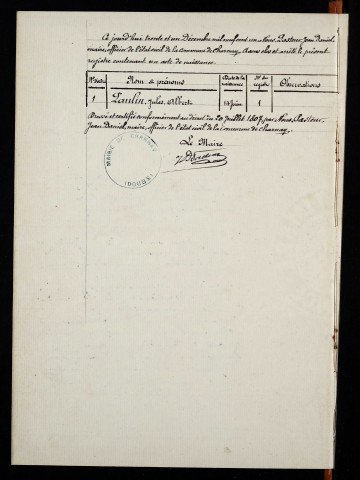 A jourd'hui trente et un Décembre mil neuf cent un Nous Pasteur Jean Daniel
maire, officier de l'état civil de la commune de Charnay, Avons clos et arrêté le présent
registre contenant un acte de naissance.
Nom & prénoms
Date de la naissance
N° du registre
Observations
1
Paulin, Jules, Albert
Juin
1
Dressé et certifié conformément au décret du 20 Juillet 1807, par Nous, Pasteur
Jean Daniel, maire, officier de l'état civil de la commune de Charnay.
Le Maire
MAIRIE DE CHARNAY
(DOUBS)